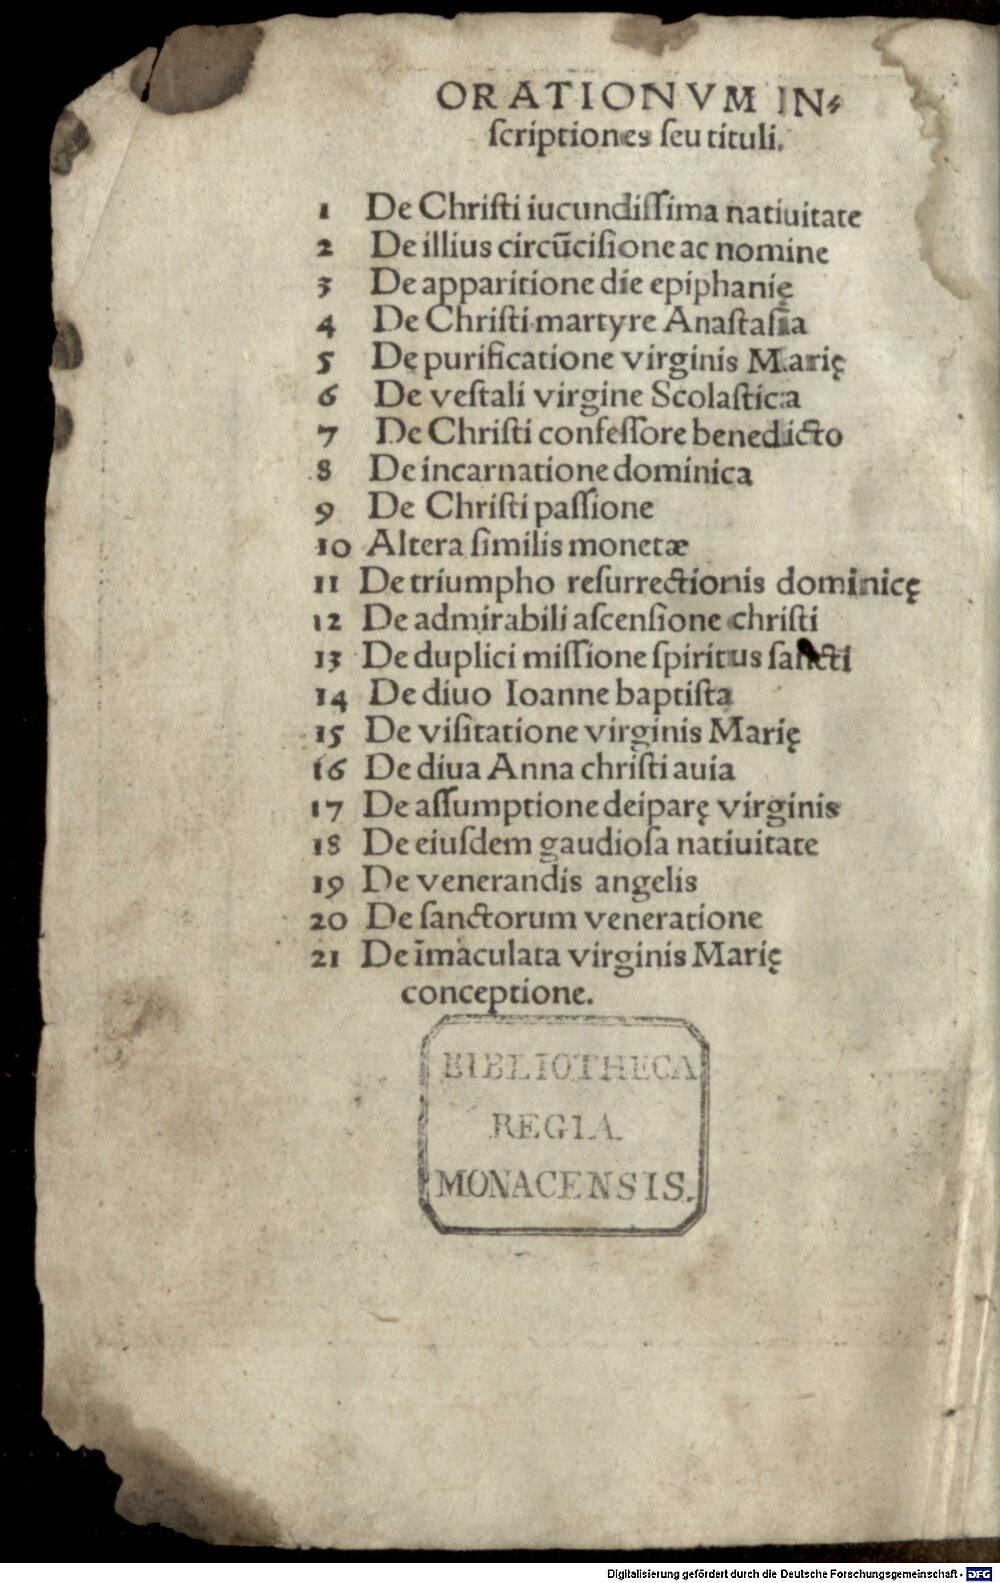 ORATIONVM IN⸗
ſcriptiones ſeu tituli.
1 De Chriſti iucundiſſima natiuitate
2 De illius circūciſione ac nomine
3 De apparitione die epiphanię
4 De Chriſti martyre Anaſtaſia
5 De purificatione virginis Marię
6 De veſtali virgine Scolaſtica
7 De Chriſti confeſſore benedicto
8 De incarnatione dominica
9 De Chriſti paſſione
10 Altera ſimilis monetæ
11 De triumpho reſurrectionis dominicę
12 De admirabili aſcenſione chriſti
13 De duplici miſſione ſpiritus ſancti
14 De diuo Ioanne baptiſta
15 De viſitatione virginis Marię
16 De diua Anna chriſti auia
17 De aſſumptione deiparę virginis
18 De eiuſdem gaudioſa natiuitate
19 De venerandis angelis
20 De ſanctorum veneratione
21 De īmaculata virginis Marię
conceptione.
BIBLIOTHECA
REGIA
MONACENSIS.
Digitalisierung gefördert durch die Deutsche Forschungsgemeinschaft - DFG